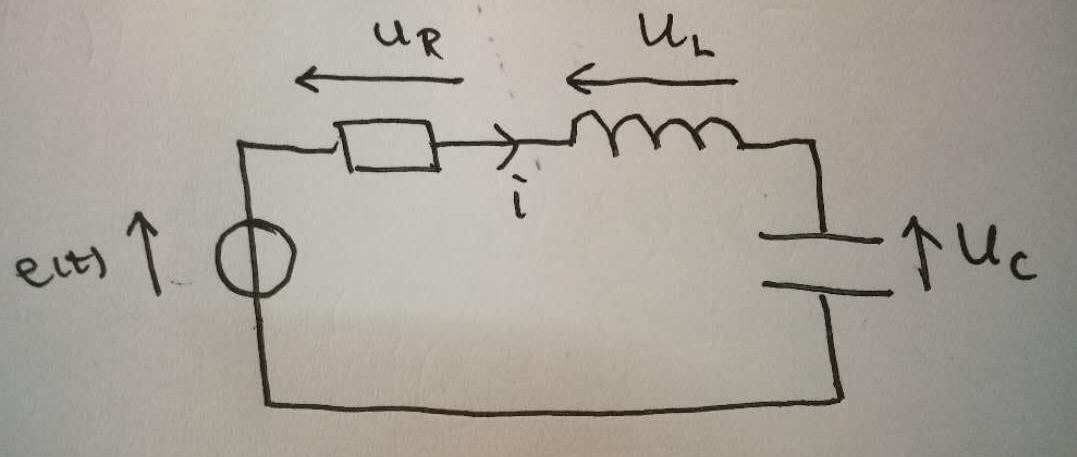 u_R
u_L
i
e(t)
u_C